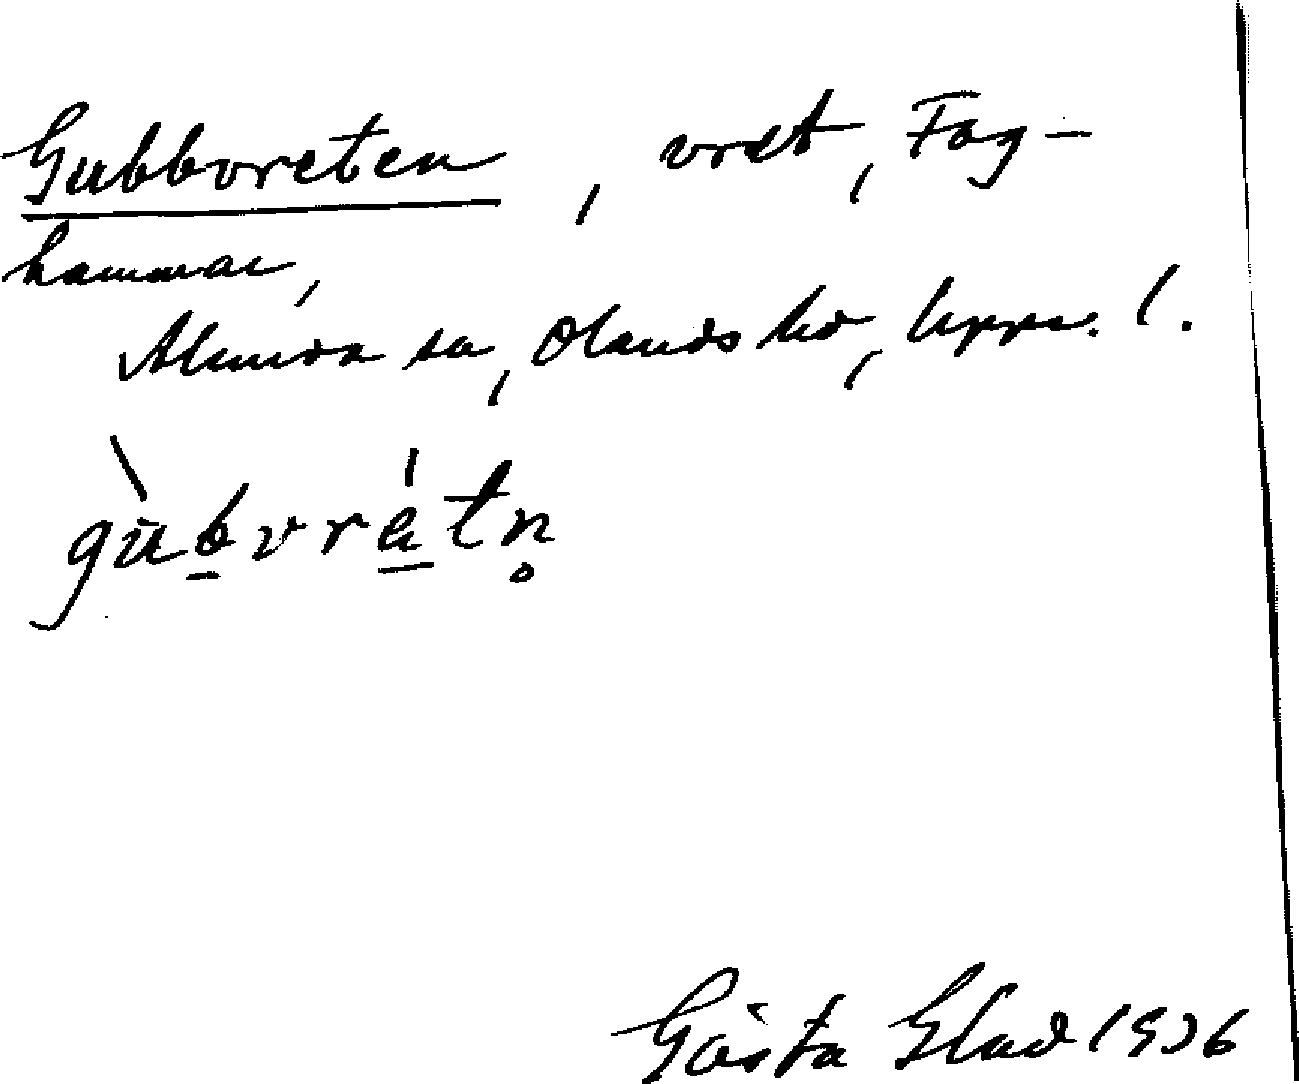 Gubbvreten, vret, Fag-
hammar,
Almunga sn, Olands hd, Upps. l.
gùb̲vrét̲n̥
Gösta Glad 1936